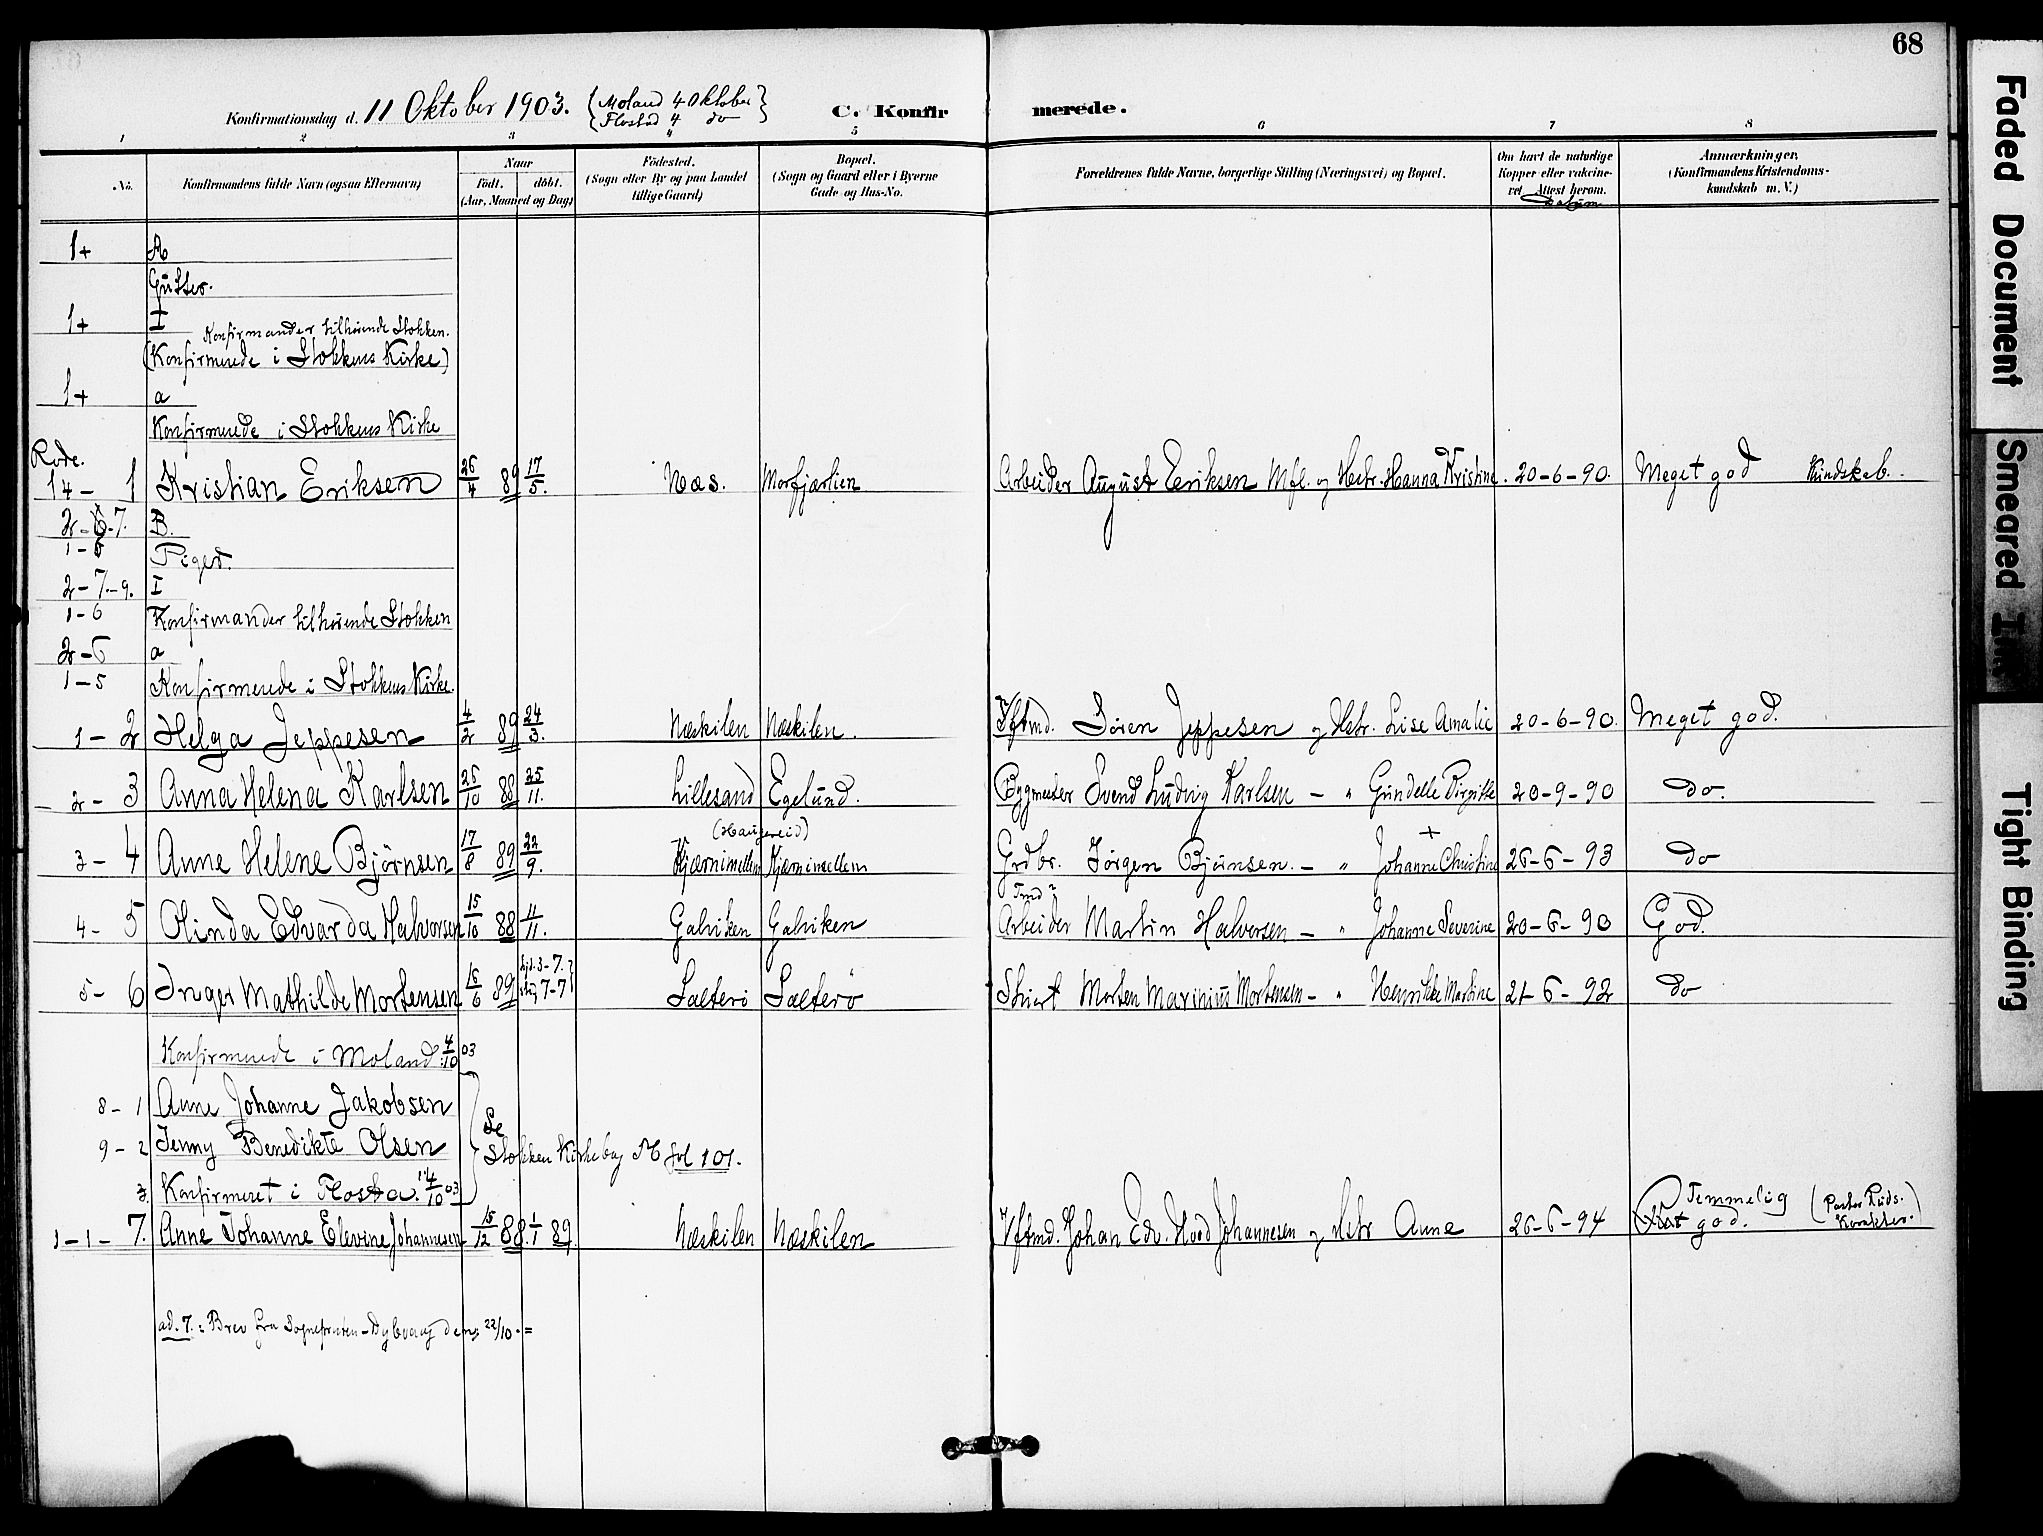 68
Konfirmationsdag d. 11 Oktober 1903. {Moland 4 Oktober}
{Flostad 4 do}
C. Konfirmerede.
1 2 3 4 5 6 7 8
No.
Konfirmandens fulde Navn (ogsaa Efternavn)
Naar
født. døbt.
(Aar, Maaned og Dag)
Fødested.
(Sogn eller By og paa Landet
tillige Gaard)
Bopæl.
(Sogn og Gaard eller i Byerne
Gade og Hus-No.
Forældrenes fulde Navne, borgerlige Stilling (Næringsvei) og Bopæl.
Om havt de naturlige
Kopper eller vakcine-
ret. Attest herom.
Datum
Anmærkninger,
(Konfirmandens Kristendoms-
kundskab m. V.)
1+ A
Gutter.
1+ I Konfirmander tilhørende Stokken.
(Konfirmerede i Stokkens Kirke)
1+ a
Konfirmerede i Stokkens Kirke
Rode.
14- 1 Kristian Eriksen 26/4 89 17/5. Næs. Morfjærlien Arbeider August Eriksen Mfl. og Hstr. Hanna Kristine. 20-6-90. Meget god Kundskab.
2-6-7. B.
1-6 Piger.
2-7-9. I
1-6 Konfirmander tilhørende Stokken
2-6 a
1-5 Konfirmerede i Stokkens Kirke.
1- 2 Helga Jeppesen 4/2 89 24/3. Næskilen Næskilen. Søren Jeppesen og Hstr. Lise Amalie 20-6-90. Meget god.
2- 3 Anna Helena Karlsen 26/10 88 25/11. Lillesand Egelund. Bygmester Svend Ludvig Karlsen - " Gundelle Birgitte 20-9-90 do.
(Haugereid)
3- 4 Anne Helene Bjørnsen 17/8 89 22/9. Kjærnimellem Kjærnimellem Grdbr. Jørgen Bjørnsen. - " Johanne + Christine 26-6-93 do
Tmd
4- 5 Olinda Edvarda Halvorsen 15/10 88 11/11. Galviken Galviken Arbeider Martin Halvorsen - " Johanne Severine 20-6-90 God.
5- 6 Inger Mathilde Mortensen 16/6 89 hjd. 3-7. 7-7 Sælterø Sælterø Morten Marinius Mortensen - " Henrikke Martine 21-6-92 do
Konfirmerede i Moland 4/10 03
8- 1 Anne Johanne Jakobsen
9- 2 Jenny Benedikte Olsen
Se
Stokken Kirkebog fol 101.
3. Konfirmeret i Flosta. 4/10 03
1-1- 7. Anne Johanne Elevine Johannesen 15/12 88. 1/1 89. Næskilen Næskilen Johan Edv. Johannesen og Hstr Anne 26-6-94 Temmelig god. (Pastor Ruds. Karakter.)
ad. 7.: Brev fra Sognepresten - Dybvaag den 22/10. =
Faded Document
Smeared Ink
Tight Binding